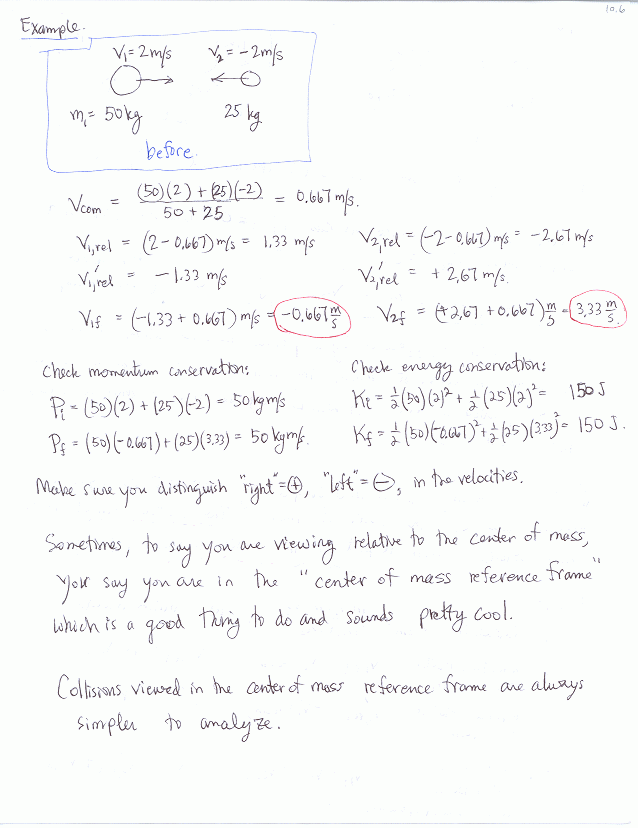 10.6
Example.
V₁ = 2m/s V₂ = -2m/s
m₁ = 50 kg 25 kg
before.
V_com = (50)(2) + (25)(-2) / 50 + 25 = 0.667 m/s.
V₁,rel = (2 - 0.667) m/s = 1.33 m/s V₂,rel = (-2 - 0.667) m/s = -2.67 m/s
V₁,rel' = -1.33 m/s V₂,rel' = +2.67 m/s.
V₁f = (-1.33 + 0.667) m/s = -0.667 m/s V₂f = (+2.67 + 0.667) m/s = 3.33 m/s.
Check momentum conservation: Check energy conservation:
P_i = (50)(2) + (25)(-2) = 50 kg m/s K_i = ½(50)(2)² + ½(25)(2)² = 150 J
P_f = (50)(-0.667) + (25)(3.33) = 50 kg m/s. K_f = ½(50)(-0.667)² + ½(25)(3.33)² = 150 J.
Make sure you distinguish "right" = ⊕, "left" = ⊖, in the velocities.
Sometimes, to say you are viewing relative to the center of mass,
you say you are in the "center of mass reference frame"
which is a good thing to do and sounds pretty cool.
Collisions viewed in the center of mass reference frame are always
simpler to analyze.